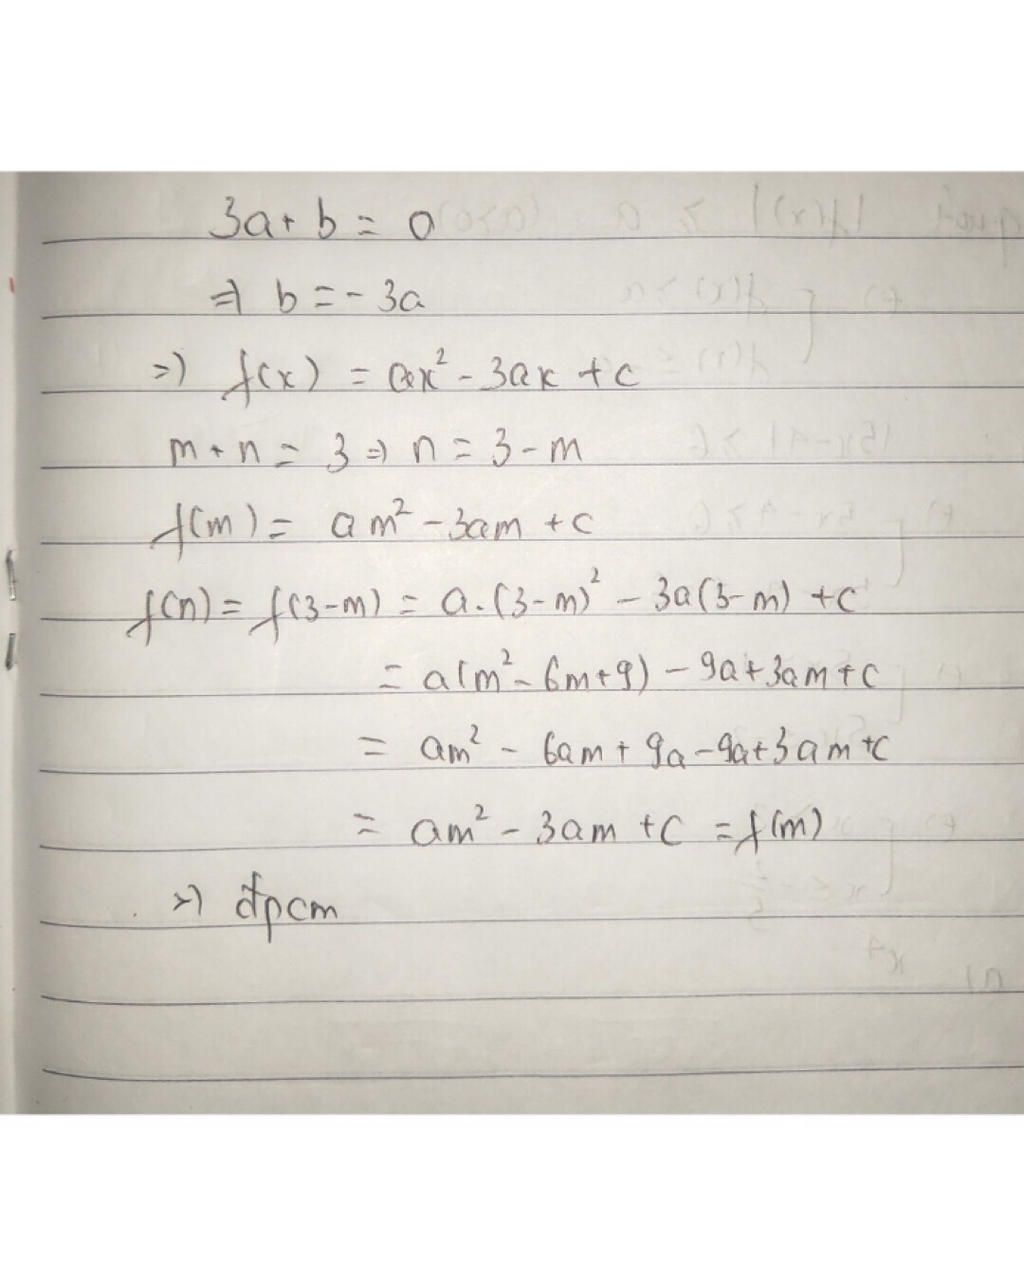 3a + b = 0
⇒ b = - 3a
⇒ f(x) = ax² - 3ax + c
m + n = 3 ⇒ n = 3 - m
f(m) = am² - 3am + c
f(n) = f(3-m) = a.(3-m)² - 3a(3-m) + c
= a(m² - 6m + 9) - 9a + 3am + c
= am² - 6am + 9a - 9a + 3am + c
= am² - 3am + c = f(m)
⇒ đpcm